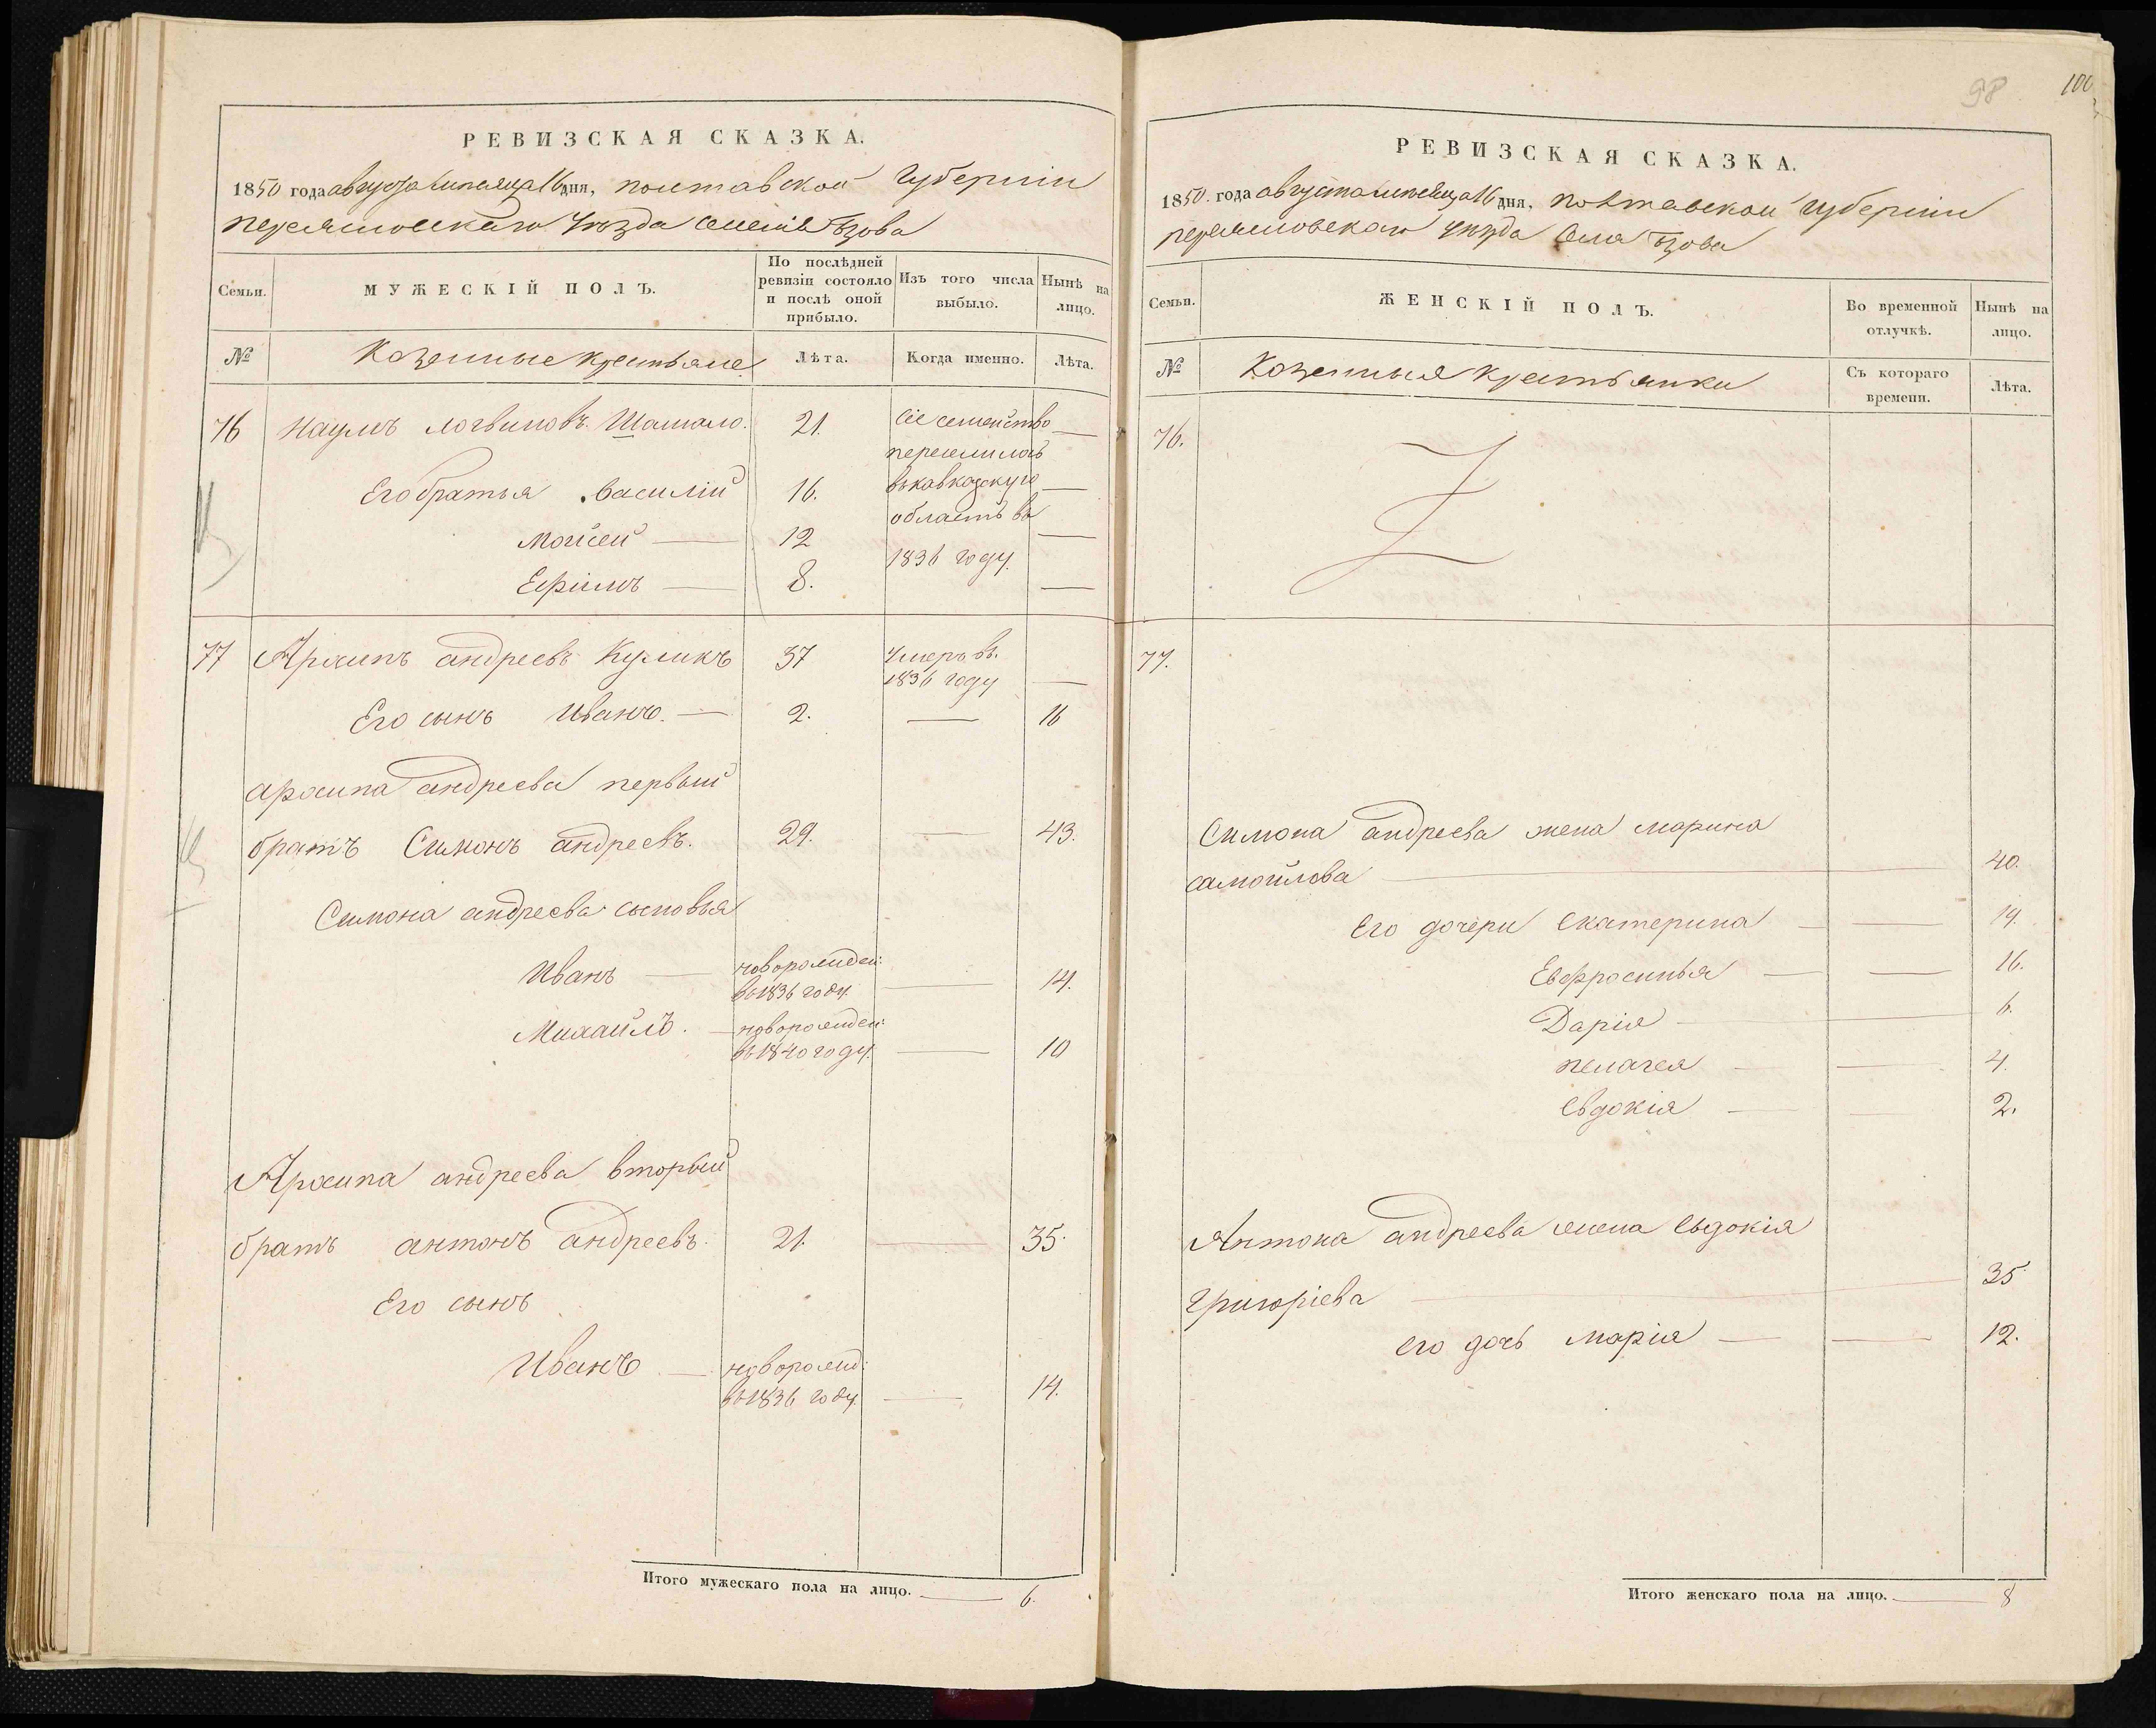 98
100
РЕВИЗСКАЯ СКАЗКА.
1850 года августа месяца 16 дня, полтавской Губерніи
переяславскаго Уѣзда
МУЖЕСКІЙ ПОЛЪ.
Семьи.
По послѣдней ревизіи состояло и послѣ оной прибыло.
Изъ того числа выбыло.
Нынѣ на лицо.
№
Козенные крестьяне
Лѣта.
Когда именно.
Лѣта.
76 Наумъ логвиновъ 21. Сіе семейство —
переселилось
Его братья василій 16. въкавказскую —
область въ
Мойсей — 12 —
1836 году.
Ефімъ — 8. —
77 Архипъ андреевъ Куликъ 37 Умеръ въ.
1836 году —
Его сынъ Иванъ. — 2. — 16
архипа андреева первый
братъ Симонъ андреевъ. 29. — 43.
Симона андреева сыновья
Иванъ — новорожден:
въ1836 году. — 14.
Михайлъ. — новорожден:
въ1840 году. — 10
Архипа андреева вторый
братъ антонъ андреевъ. 21. — 35.
Его сынъ
Иванъ — новорожд:
въ1836 году. — 14.
Итого мужескаго пола на лицо. — 6.
РЕВИЗСКАЯ СКАЗКА.
1850. года августа месяца 16 дня, полтавской Губерніи
переяславскаго уѣзда Села
Семьи.
ЖЕНСКІЙ ПОЛЪ.
Во временной отлучкѣ.
Нынѣ на лицо.
№
Козенныя крестьянки
Съ котораго времени.
Лѣта.
76.
77.
Симона андреева жена марина
самойлова — 40.
Его дочери екатерина — — 19.
Евфросинья — — 16.
Дарія — 6.
пелагея — — 4.
евдокія — — 2.
Антона андреева жена евдокія
Григоріева — 35
его дочь марія — — 12.
Итого женскаго пола на лицо. — 8